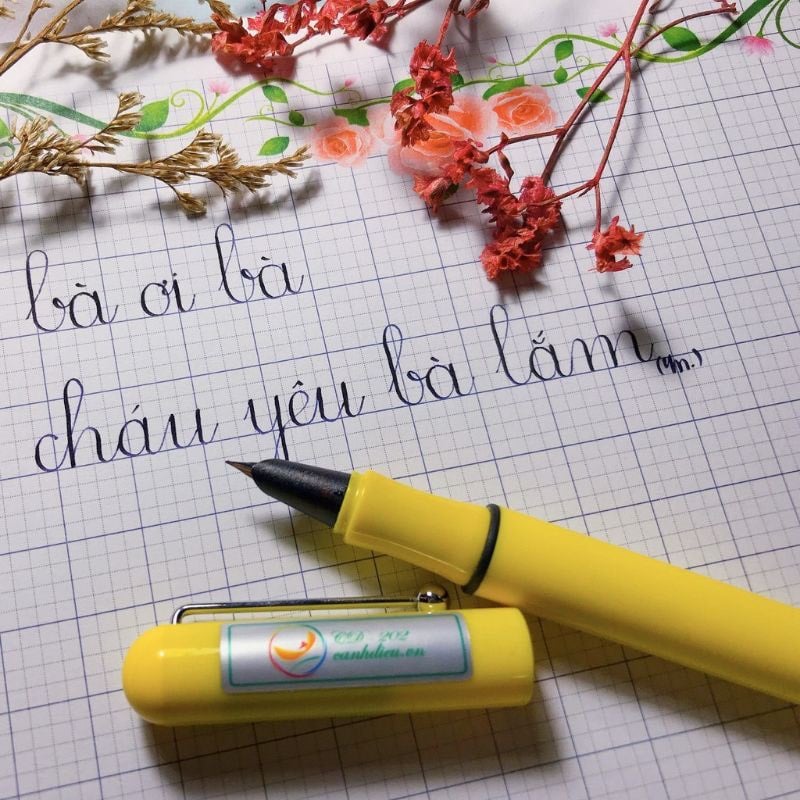 bà ơi bà
cháu yêu bà lắm
CD 202
canhdieu.vn